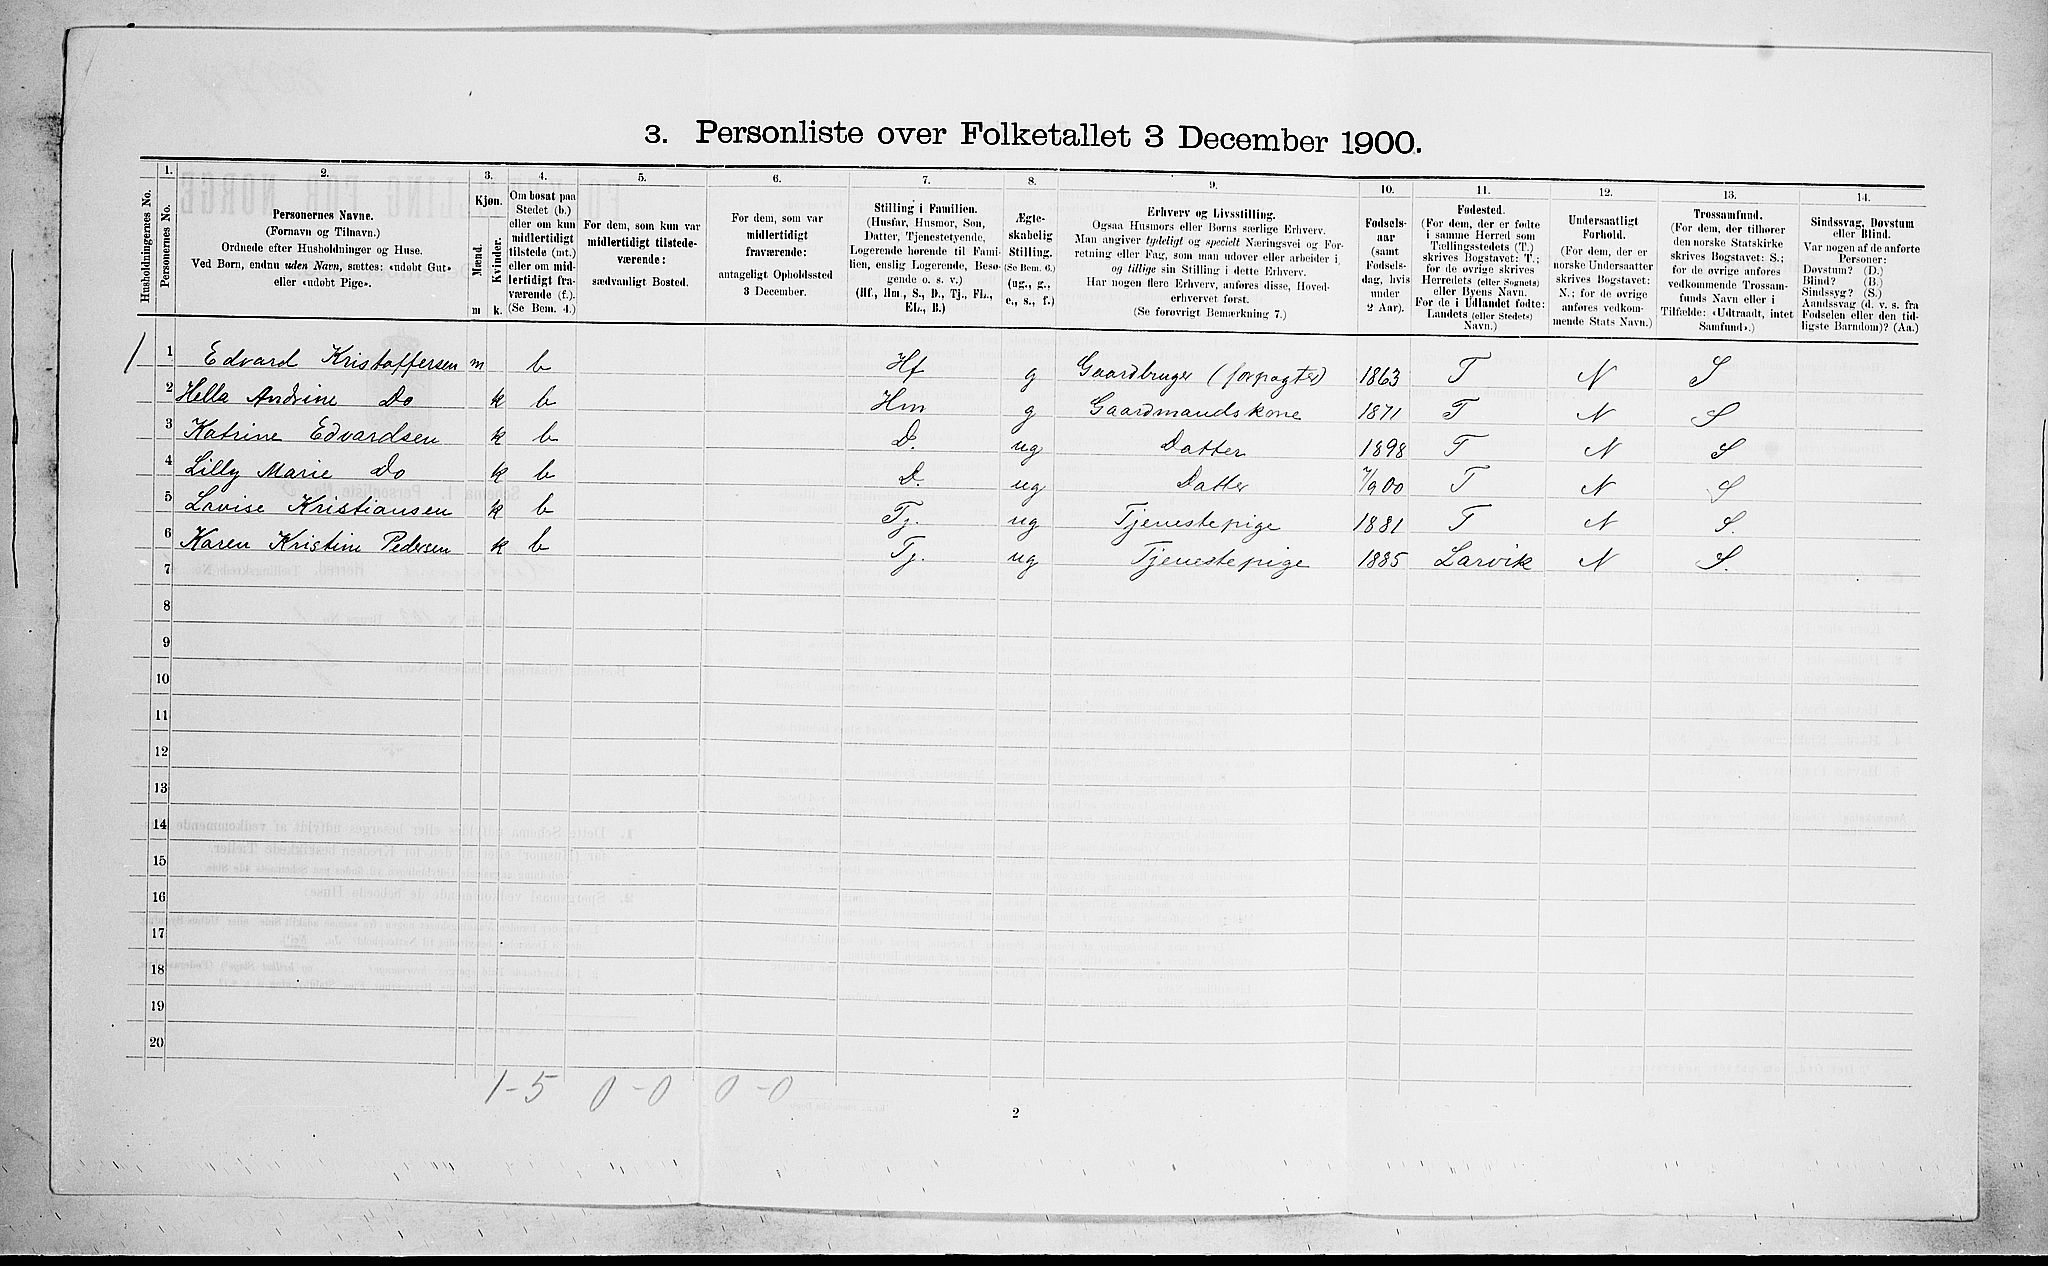 3. Personliste over Folketallet 3 December 1900.
Husholdningernes No.
1. Personernes No.
2. Personernes Navne.
(Fornavn og Tilnavn.)
Ordnede efter Husholdninger og Huse.
Ved Børn, endnu uden Navn, sættes: «udøbt Gut»
eller «udøbt Pige».
3. Kjøn.
Mænd. Kvinder.
m k.
4. Om bosat paa
Stedet (b.)
eller om kun
midlertidigt
tilstede (mt.)
eller om mid-
lertidigt fra-
værende (f.).
(Se Bem. 4.)
5. For dem, som kun var
midlertidigt tilstede-
værende:
sædvanligt Bosted.
6. For dem, som var
midlertidigt
fraværende:
antageligt Opholdssted
3 December.
7. Stilling i Familien.
(Husfar, Husmor, Søn,
Datter, Tjenestetyende,
Logerende hørende til Fami-
lien, enslig Logerende, Besø-
gende o. s. v.)
(Hf., Hm., S., D., Tj., FL.,
EL., B.)
8. Ægte-
skabelig
Stilling.
(Se Bem. 6.)
(ug., g.,
e., s., f.)
9. Erhverv og Livsstilling.
Ogsaa Husmors eller Børns særlige Erhverv.
Man angiver tydeligt og specielt Næringsvei og For-
retning eller Fag, som man udøver eller arbeider i,
og tillige sin Stilling i dette Erhverv.
Har nogen flere Erhverv, anføres disse, Hoved-
erhvervet først.
(Se forøvrigt Bemærkning 7.)
10. Fødsels-
aar
(samt
Fødsels-
dag, hvis
under
2 Aar).
11. Fødested.
(For dem, der er fødte
i samme Herred som
Tællingsstedets (T.)
skrives Bogstavet: T.;
for de øvrige skrives
Herredets (eller Sognets)
eller Byens Navn.
For de i Udlandet fødte:
Landets (eller Stedets)
Navn.)
12. Undersaatligt
Forhold.
(For dem, der er
norske Undersaatter
skrives Bogstavet:
N.; for de øvrige
anføres vedkom-
mende Stats Navn.)
13. Trossamfund.
(For dem, der tilhører
den norske Statskirke
skrives Bogstavet: S.;
for de øvrige anføres
vedkommende Trossam-
funds Navn eller i
Tilfælde: «Udtraadt, intet
Samfund».)
14. Sindssvag, Døvstum
eller Blind.
Var nogen af de anførte
Personer:
Døvstum? (D.)
Blind? (B.)
Sindssyg? (S.)
Aandssvag (d. v. s. fra
Fødselen eller den tid-
ligste Barndom)? (Aa.)
1 1 Edvard Kristoffersen m b Hf g Gaardbruger (forpagter) 1863 T N S
2 Hella Andrine Do k b Hm g Gaardmandskone 1871 T N S
3 Katrine Edvardsen k b D. ug Datter 1898 T N S
4 Lilly Marie Do k b D. ug Datter 7/9 00 T N S
5 Lovise Kristiansen k b Tj. ug Tjenestepige 1881 T N S.
6 Karen Kristine Pedersen k b Tj. ug Tjenestepige 1885 Larvik N S.
7
8
9
10
11
12
13
14
15
16
17
18
19
20
1-5 0-0 0-0
2